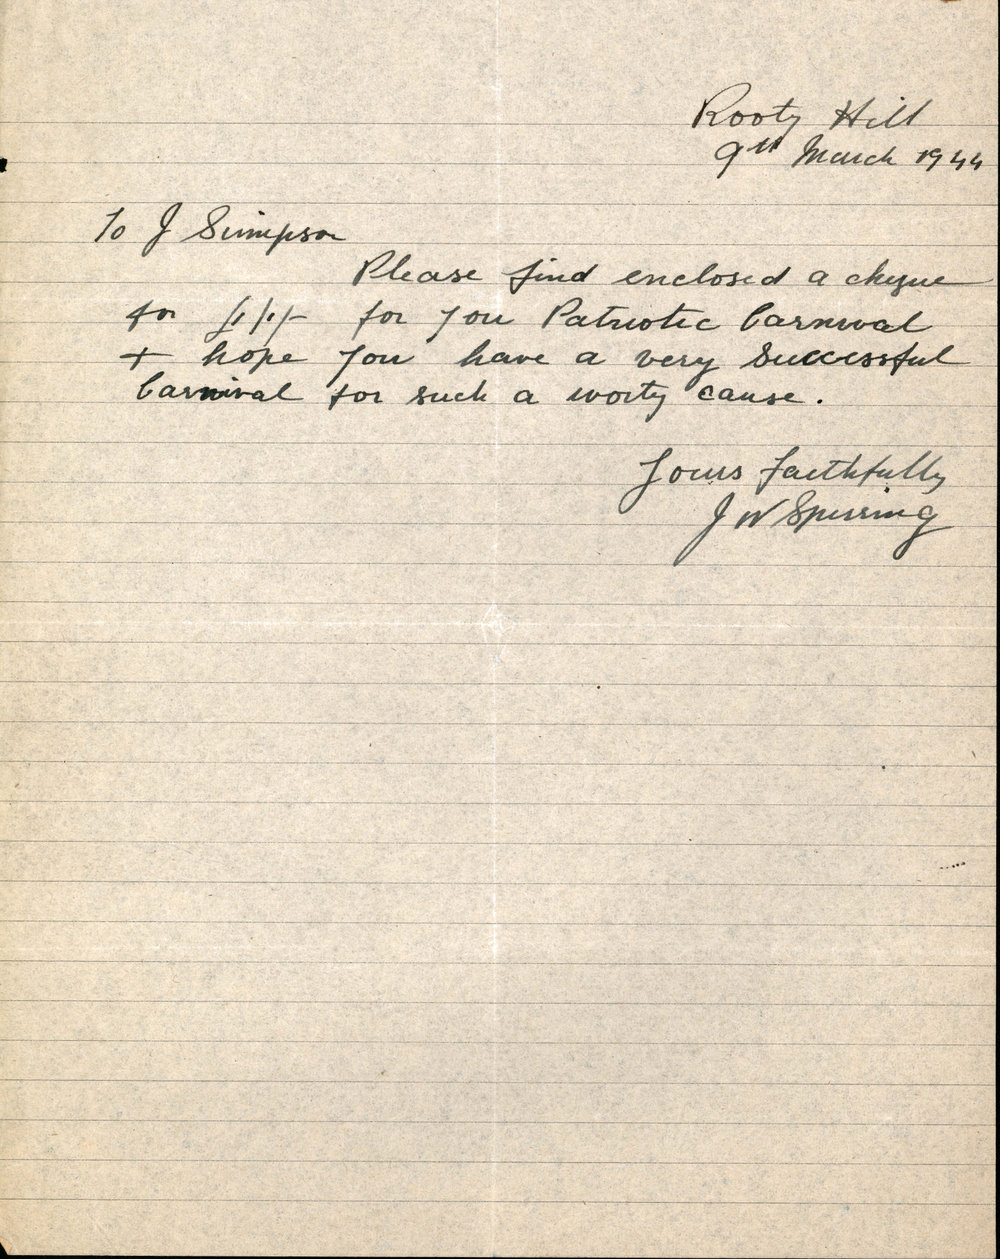 Rooty Hill
9th March 1944
To J Simpson
Please find enclosed a cheque
for £1/1/- for you Patriotic Carnival
+ hope you have a very Successful
Carnival for such a worty cause.
Yours faithfully
J W Spurring